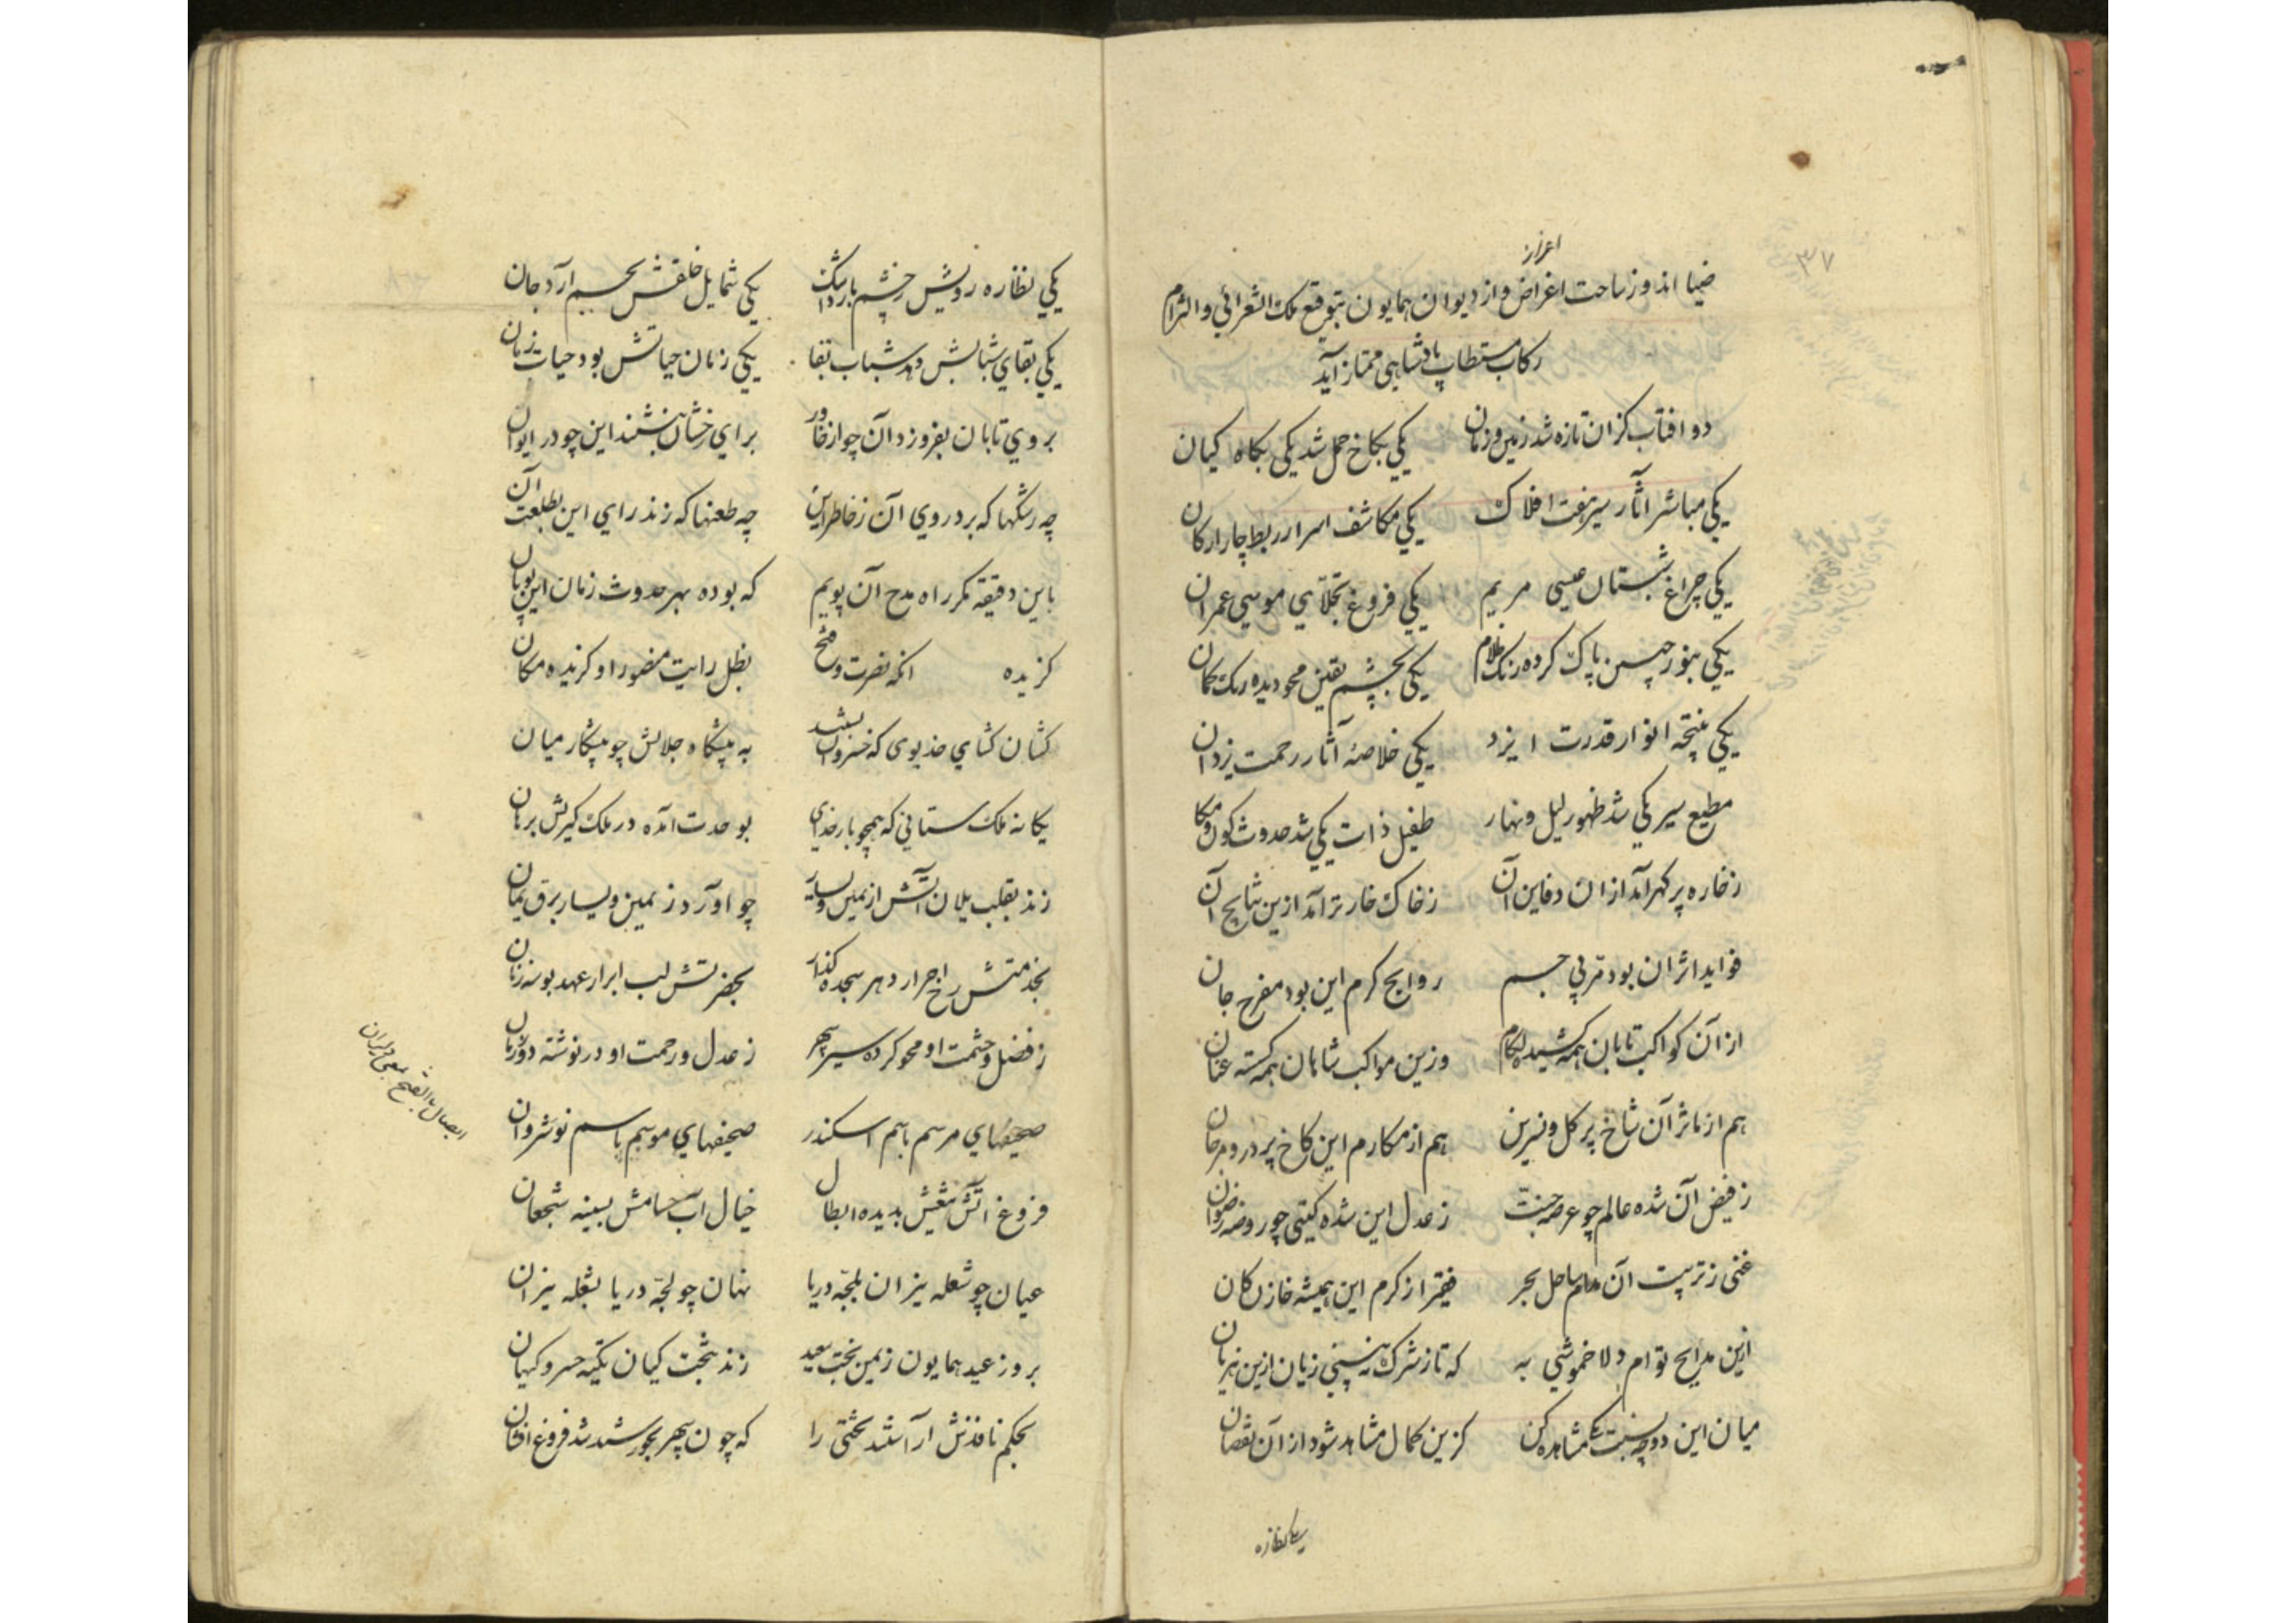 ۳۷
اعزاز
ضیا اندوز ساحت اغراض و از دیوان همایون بتوقیع ملک الشعرائی و التزام
رکاب مستطاب پادشاهی ممتاز آید
دو افتاب کزان تازه شد زمین و زمان یکی بکاخ حمل شد یکی بکاه کیان
یکی مباشر آثار سیر هفت افلاک یکی مکاشف اسرار ربط چار ارکان
یکی چراغ شبستان عیسی مریم یکی فروغ تجلّای موسی عمران
یکی بنور حسن پاک کرده زنک ظلام یکی بچشم یقین محو دیده رنک کمان
یکی نتیجه انوار قدرت ایزد یکی خلاصهٔ آثار رحمت یزدان
مطیع سیر یکی شد ظهور لیل و نهار طفیل ذات یکی شد حدوث کون و مکان
ز خاره پر کهر آمد از ان دفاین آن ز خاک خار تر آمد ازین نتایج آن
فواید اثر آن بود مربی جسم روایح کرم این بود مفرح جان
از آن کواکب تابان همه کشیده لکام وزین مواکب شاهان همه کسسته عنان
هم از ماثر آن شاخ پر کل و نسرین هم از مکارم این کاخ پر در و مرجان
ز فیض آن شده عالم چو عرصه جنّت ز عدل این شده کیتی چو روضه رضوان
غنی ز تربیت آن مدام ساحل بحر فقیر از کرم این همیشه خازن کان
ازین مدایح توام دلا خموشی به که تا ز شرک نه بینی زیان ازین هذیان
میان این دو چه نسبت یکی مشاهده کن کزین کمال مشاهد شود از آن نقصان
یکی نظاره
یکی نظاره رویش ز چشم بارد اشک یکی شمایل خلقش بجسم آرد جان
یکی بقای شبابش دهد شباب بقا یکی زمان حیاتش بود حیات زمان
بروی تابان بفروزد آن چو از خاور برای رخشان بنشند این چو در ایوان
چه رشکها که برد روی آن ز خاطر این چه طعنها که زند رای این بطلعت آن
باین دقیقه مکر راه مدح آن پویم که بوده بهر حدوث زمان این پویان
کزیده انکه نصرت و فتح بظل رایت منصور او کزیده مکان
کشان کشای خدیوی که خسروان بستند به پیشکاه جلالش چو پیشکار میان
یکانه ملک ستانی که همچو بار خدای بوحدت آمده در ملک کیریش برهان
زند بقلب یلان آتش از یمین و یسار چو اورد ز یمین و یسار برق یمان
بخدمتش رخ احرار دهر سجده کذار بحضرتش لب ابرار عهد بوسه زنان
ز فضل و حشمت او محو کرده سیر سپهر ز عدل و رحمت او درنوشته دور زمان
صحیفهای مرسم باسم اسکندر صحیفهای موسم باسم نوشروان
فروغ اتش تیغش بدیده ابطال خیال آب حسامش بسینه شجعان
عیان چو شعله نیران بلجّه دریا نهان چو لجّه دریا بشعله نیران
بروز عید همایون ز یمن بخت سعید زند بتخت کیان تکیه خسرو کیهان
بحکم نافذش آراستند تختی را که چون سپهر بخورشید شد فروغ افشان